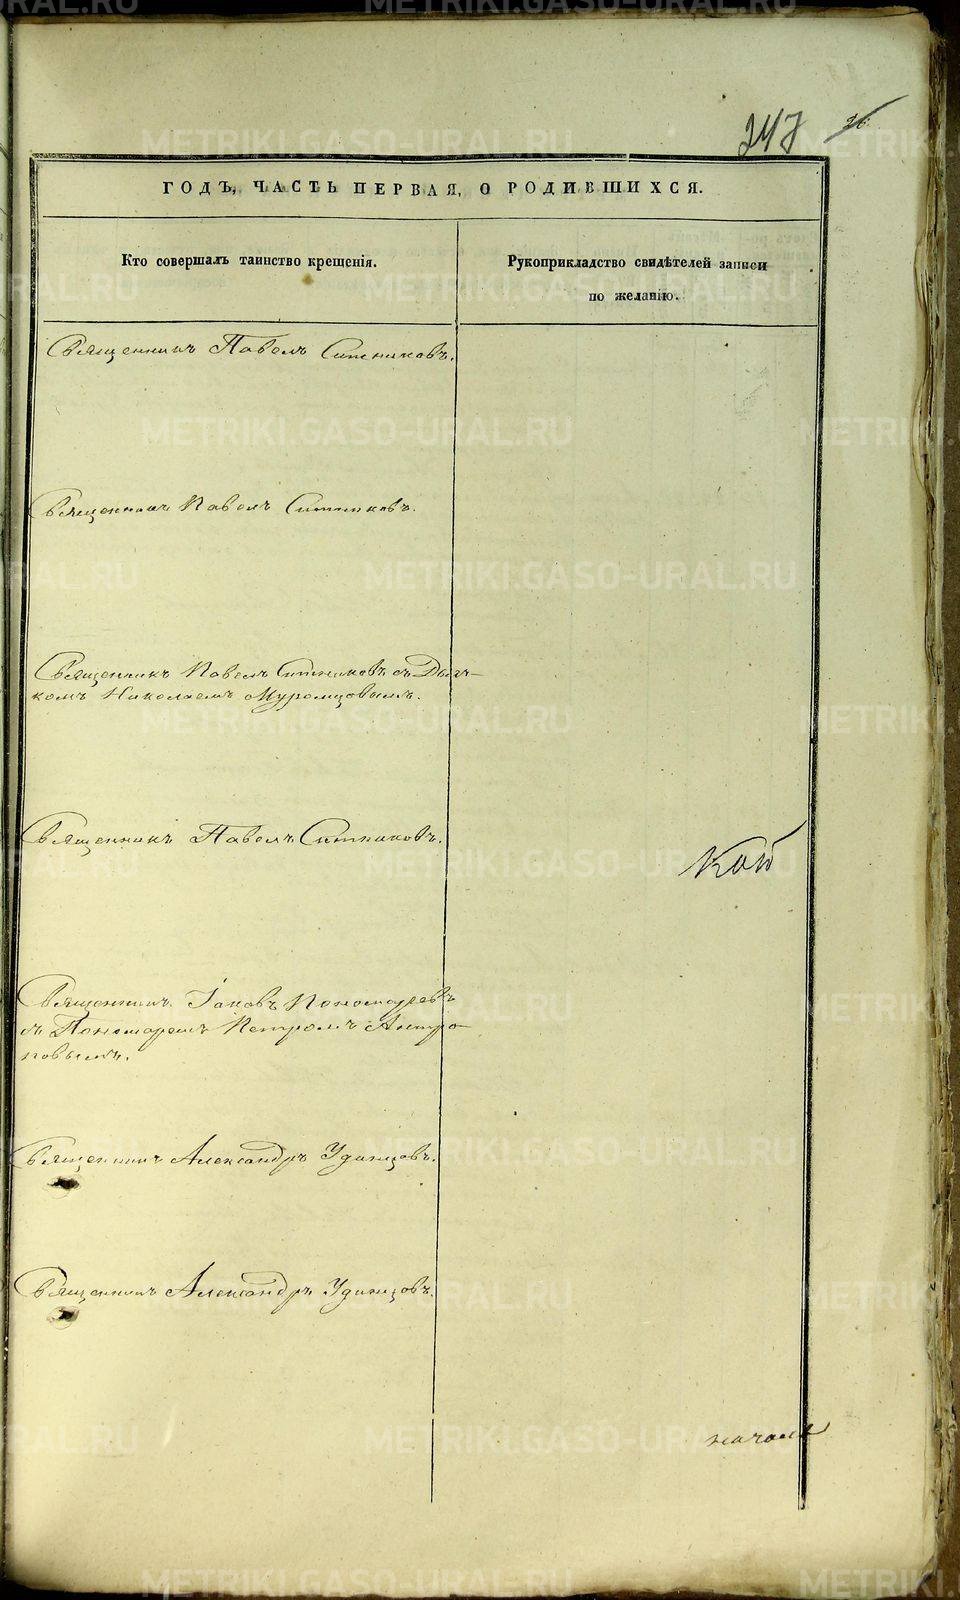 247 26
ГОДЪ, ЧАСТЬ ПЕРВАЯ, О РОДИВШИХСЯ.
Кто совершалъ таинство крещенія.
Рукоприкладство свидѣтелей записи
по желанію.
Священникъ Павелъ Ситниковъ.
Священникъ Павелъ Ситниковъ.
Священникъ Павелъ Ситниковъ съ Дьяч-
комъ Николаемъ Муромцовымъ.
Священникъ Павелъ Ситниковъ.
Священникъ Іаковъ Пономаревъ
съ Пономаремъ Петромъ Антро-
повымъ.
Священникъ Александръ Удинцовъ.
Священникъ Александръ Удинцовъ.
METRIKI.GASO-URAL.RU